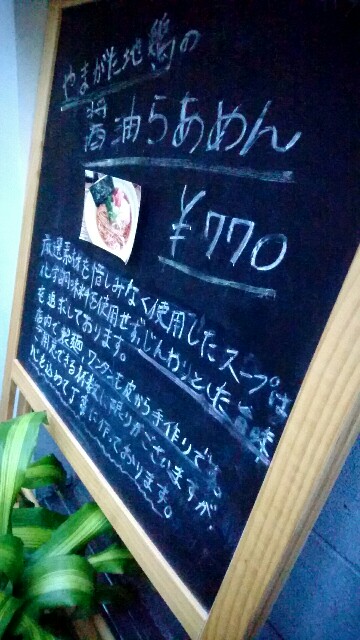 やまがた地鶏の
醤油らあめん
¥770
厳選素材を惜しみなく使用したスープは
化学調味料を使用せずじんわりとした旨味
を追求しております。
店内で製麺、ワンタンも皮から手作りです。
ご用意できる杯数に限りがございますが、
心を込めて丁寧に作っております。